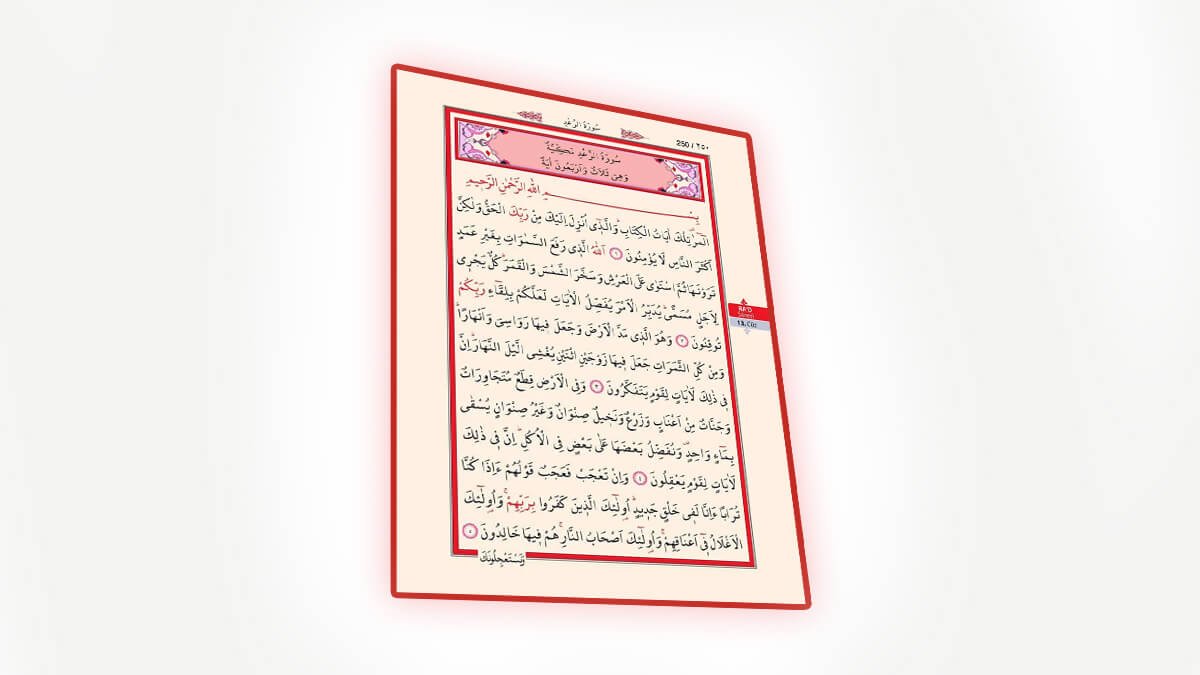 سُورَةُ الرَّعْدِ
250 / ٢٥٠
سُورَةُ الرَّعْدِ مَكِّيَّةٌ
وَهِىَ ثَلَاثٌ وَاَرْبَعُونَ اٰيَةً
بِسْــــمِ اللّٰهِ الرَّحْمٰنِ الرَّحٖيمِ
الٓمٓرٰ تِلْكَ اٰيَاتُ الْكِتَابِ وَالَّذٖٓى اُنْزِلَ اِلَيْكَ مِنْ رَبِّكَ الْحَقُّ وَلٰكِنَّ
اَكْثَرَ النَّاسِ لَا يُؤْمِنُونَ ١ اَللّٰهُ الَّذٖى رَفَعَ السَّمٰوَاتِ بِغَيْرِ عَمَدٍ
تَرَوْنَهَا ثُمَّ اسْتَوٰى عَلَى الْعَرْشِ وَسَخَّرَ الشَّمْسَ وَالْقَمَرَ كُلٌّ يَجْرٖى
لِاَجَلٍ مُسَمًّى يُدَبِّرُ الْاَمْرَ يُفَصِّلُ الْاٰيَاتِ لَعَلَّكُمْ بِلِقَٓاءِ رَبِّكُمْ
تُوقِنُونَ ٢ وَهُوَ الَّذٖى مَدَّ الْاَرْضَ وَجَعَلَ فٖيهَا رَوَاسِىَ وَاَنْهَارًا
وَمِنْ كُلِّ الثَّمَرَاتِ جَعَلَ فٖيهَا زَوْجَيْنِ اثْنَيْنِ يُغْشِى الَّيْلَ النَّهَارَ اِنَّ
فٖى ذٰلِكَ لَاٰيَاتٍ لِقَوْمٍ يَتَفَكَّرُونَ ٣ وَفِى الْاَرْضِ قِطَعٌ مُتَجَاوِرَاتٌ
وَجَنَّاتٌ مِنْ اَعْنَابٍ وَزَرْعٌ وَنَخٖيلٌ صِنْوَانٌ وَغَيْرُ صِنْوَانٍ يُسْقٰى
بِمَٓاءٍ وَاحِدٍ وَنُفَضِّلُ بَعْضَهَا عَلٰى بَعْضٍ فِى الْاُكُلِ اِنَّ فٖى ذٰلِكَ
لَاٰيَاتٍ لِقَوْمٍ يَعْقِلُونَ ٤ وَاِنْ تَعْجَبْ فَعَجَبٌ قَوْلُهُمْ ءَاِذَا كُنَّا
تُرَابًا ءَاِنَّا لَفٖى خَلْقٍ جَدٖيدٍ اُولٰٓئِكَ الَّذٖينَ كَفَرُوا بِرَبِّهِمْ وَاُولٰٓئِكَ
الْاَغْلَالُ فٖٓى اَعْنَاقِهِمْ وَاُولٰٓئِكَ اَصْحَابُ النَّارِ هُمْ فٖيهَا خَالِدُونَ ٥
وَيَسْتَعْجِلُونَكَ
RA'D
Sûresi
13. Cüz